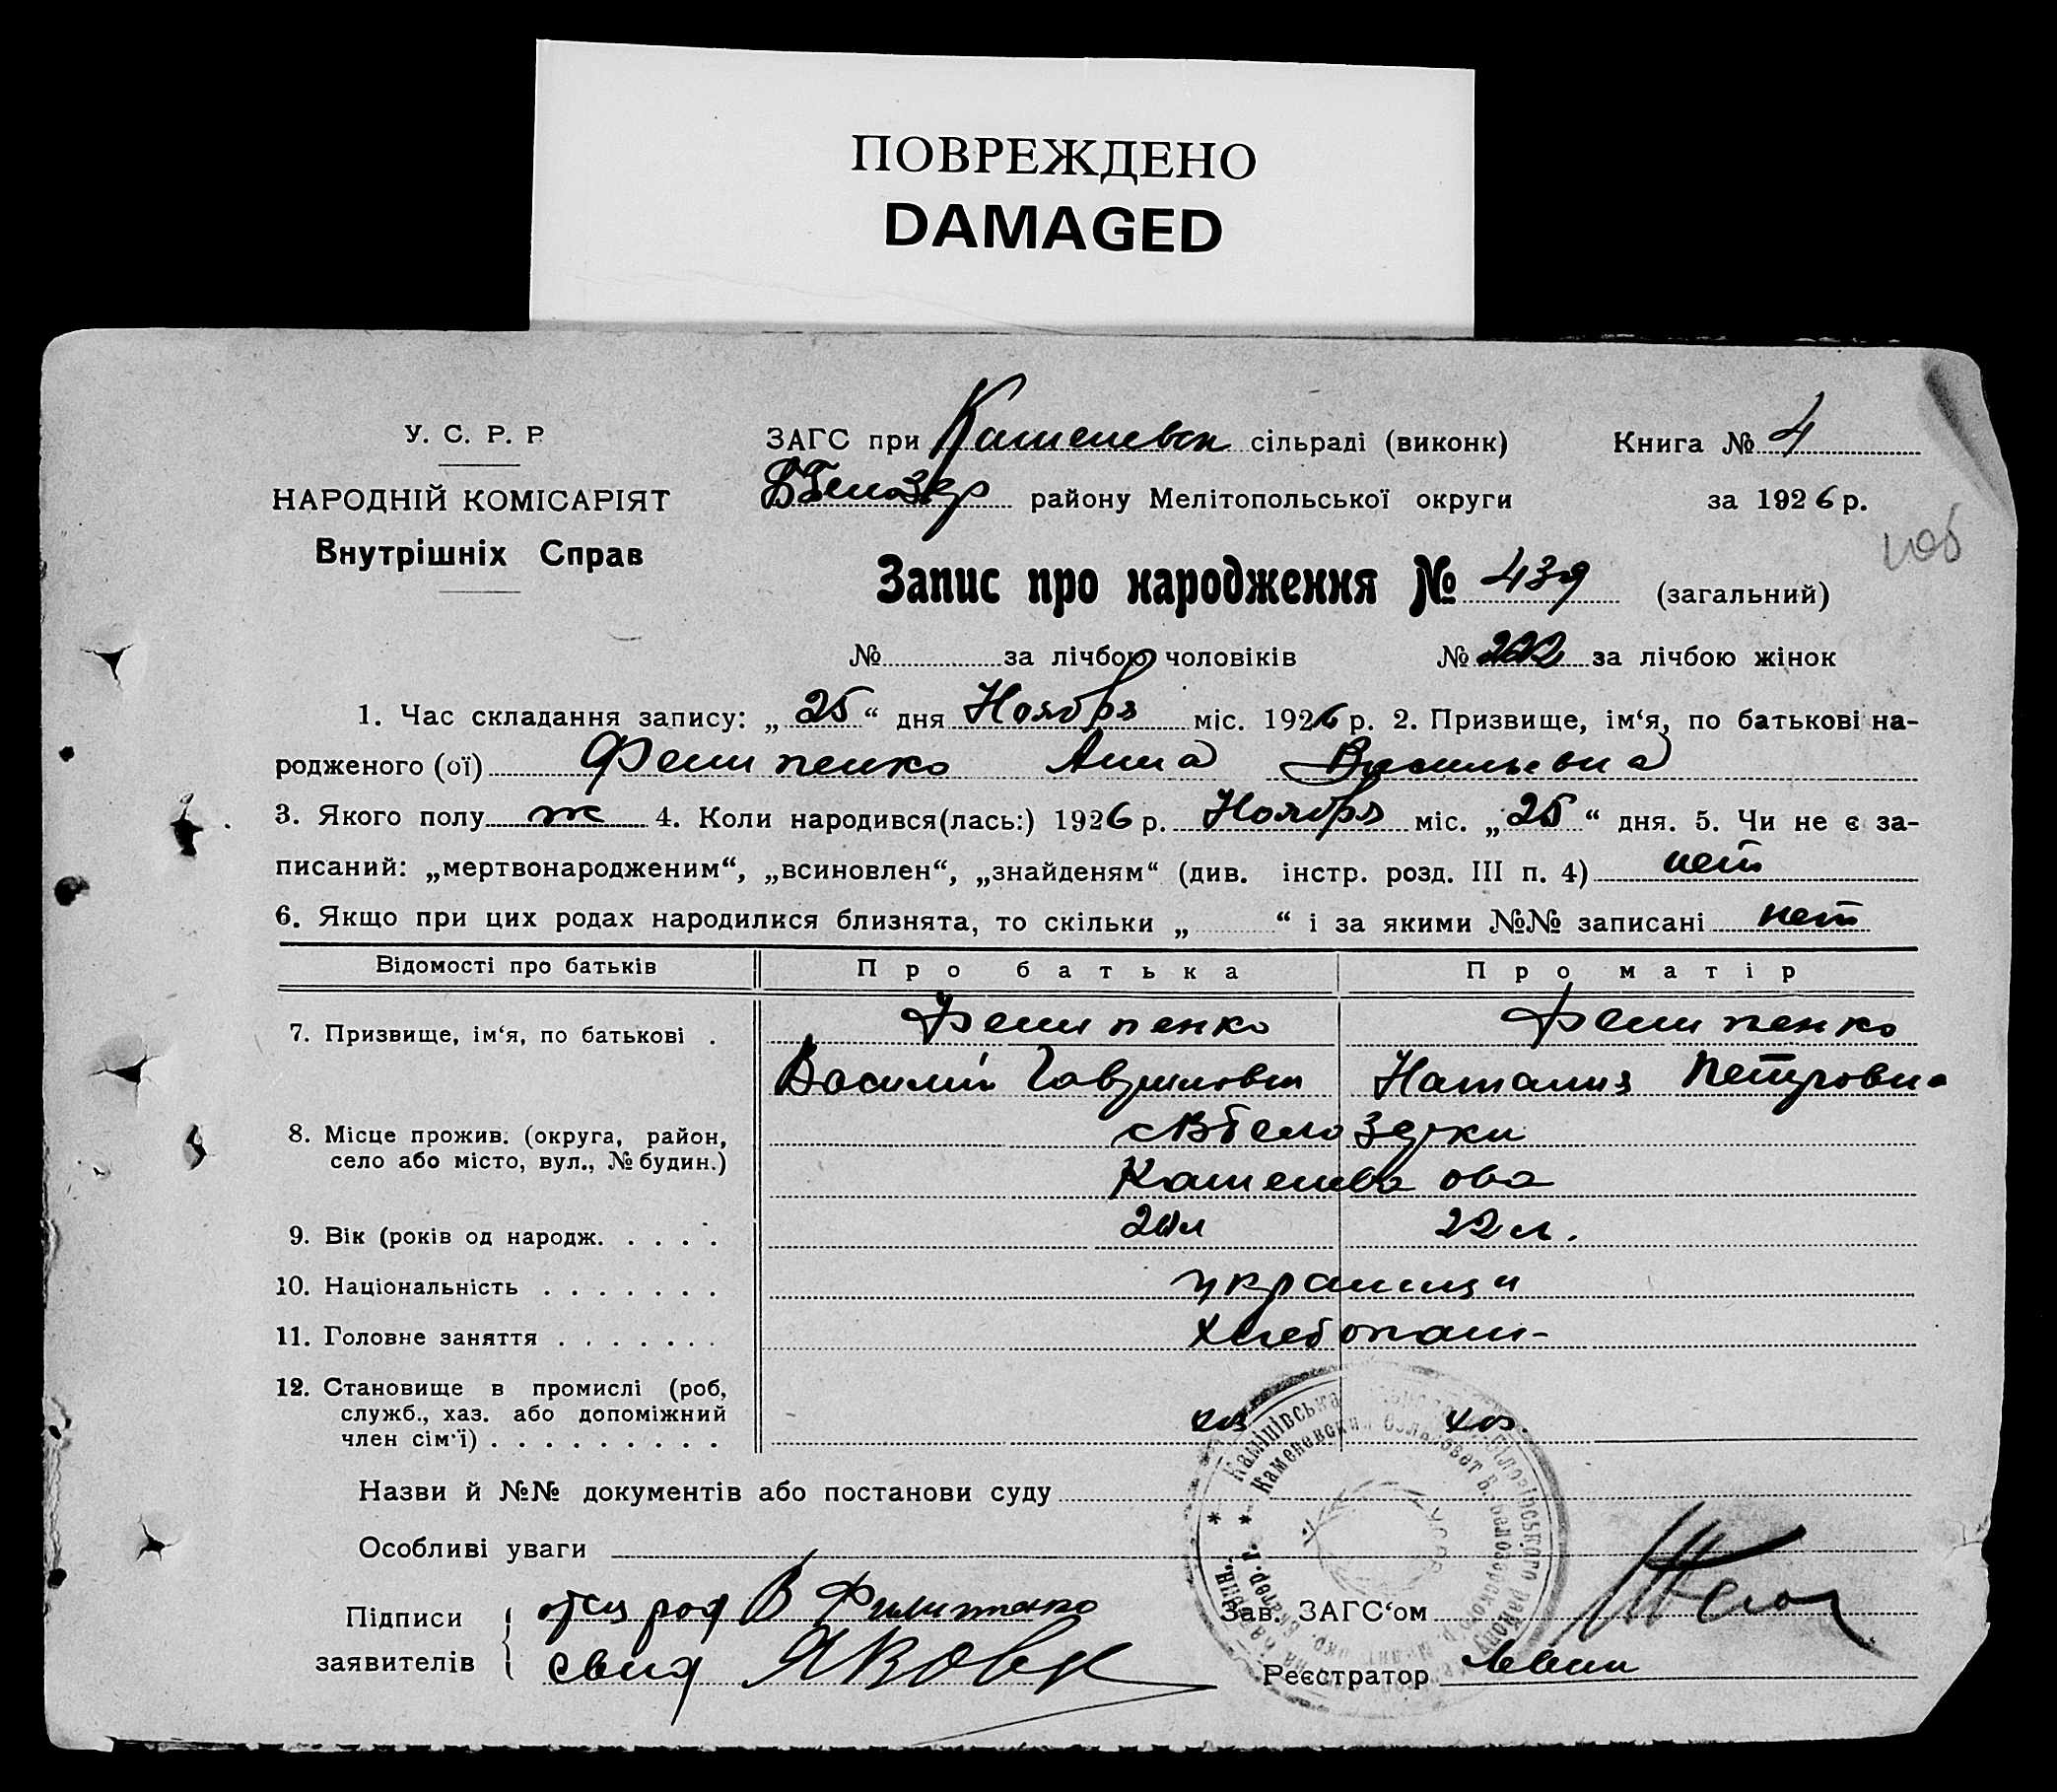 ПОВРЕЖДЕНО
DAMAGED
У. С. Р. Р
НАРОДНІЙ КОМІСАРІЯТ
Внутрішніх Справ
ЗАГС при Каменевск сільраді (виконк) Книга № 4
району Мелітопольської округи за 1926 р.
Запис про народження № 439 (загальний)
№ за лічбою чоловіків № за лічбою жінок
1. Час складання запису: „25“ дня Ноября міс. 1926 р. 2. Призвище, ім‘я, по батькові на-
родженого (ої) Анна Васильевна
3. Якого полу ж 4. Коли народився(лась:) 1926 р. Ноября міс. „25“ дня. 5. Чи не є за-
писаний: „мертвонародженим“, „всиновлен“, „знайденям“ (див. інстр. розд. III п. 4) нет
6. Якщо при цих родах народилися близнята, то скільки „ “ і за якими №№ записані нет
Відомості про батьків Про батька Про матір
7. Призвище, ім‘я, по батькові .
Василий Наталия Петровна
8. Місце прожив. (округа, район,
село або місто, вул., № будин.)
9. Вік (років од народж. . . . . 22 л.
10. Національність . . . . . . . украинци
11. Головне заняття . . . . . . . хлебопаш-
12. Становище в промислі (роб,
служб., хаз. або допоміжний
член сім‘ї) . . . . . . . . . хоз хоз
Назви й №№ документів або постанови суду
Особливі уваги
Підписи В Зав. ЗАГС‘ом
заявителів свид Реєстратор